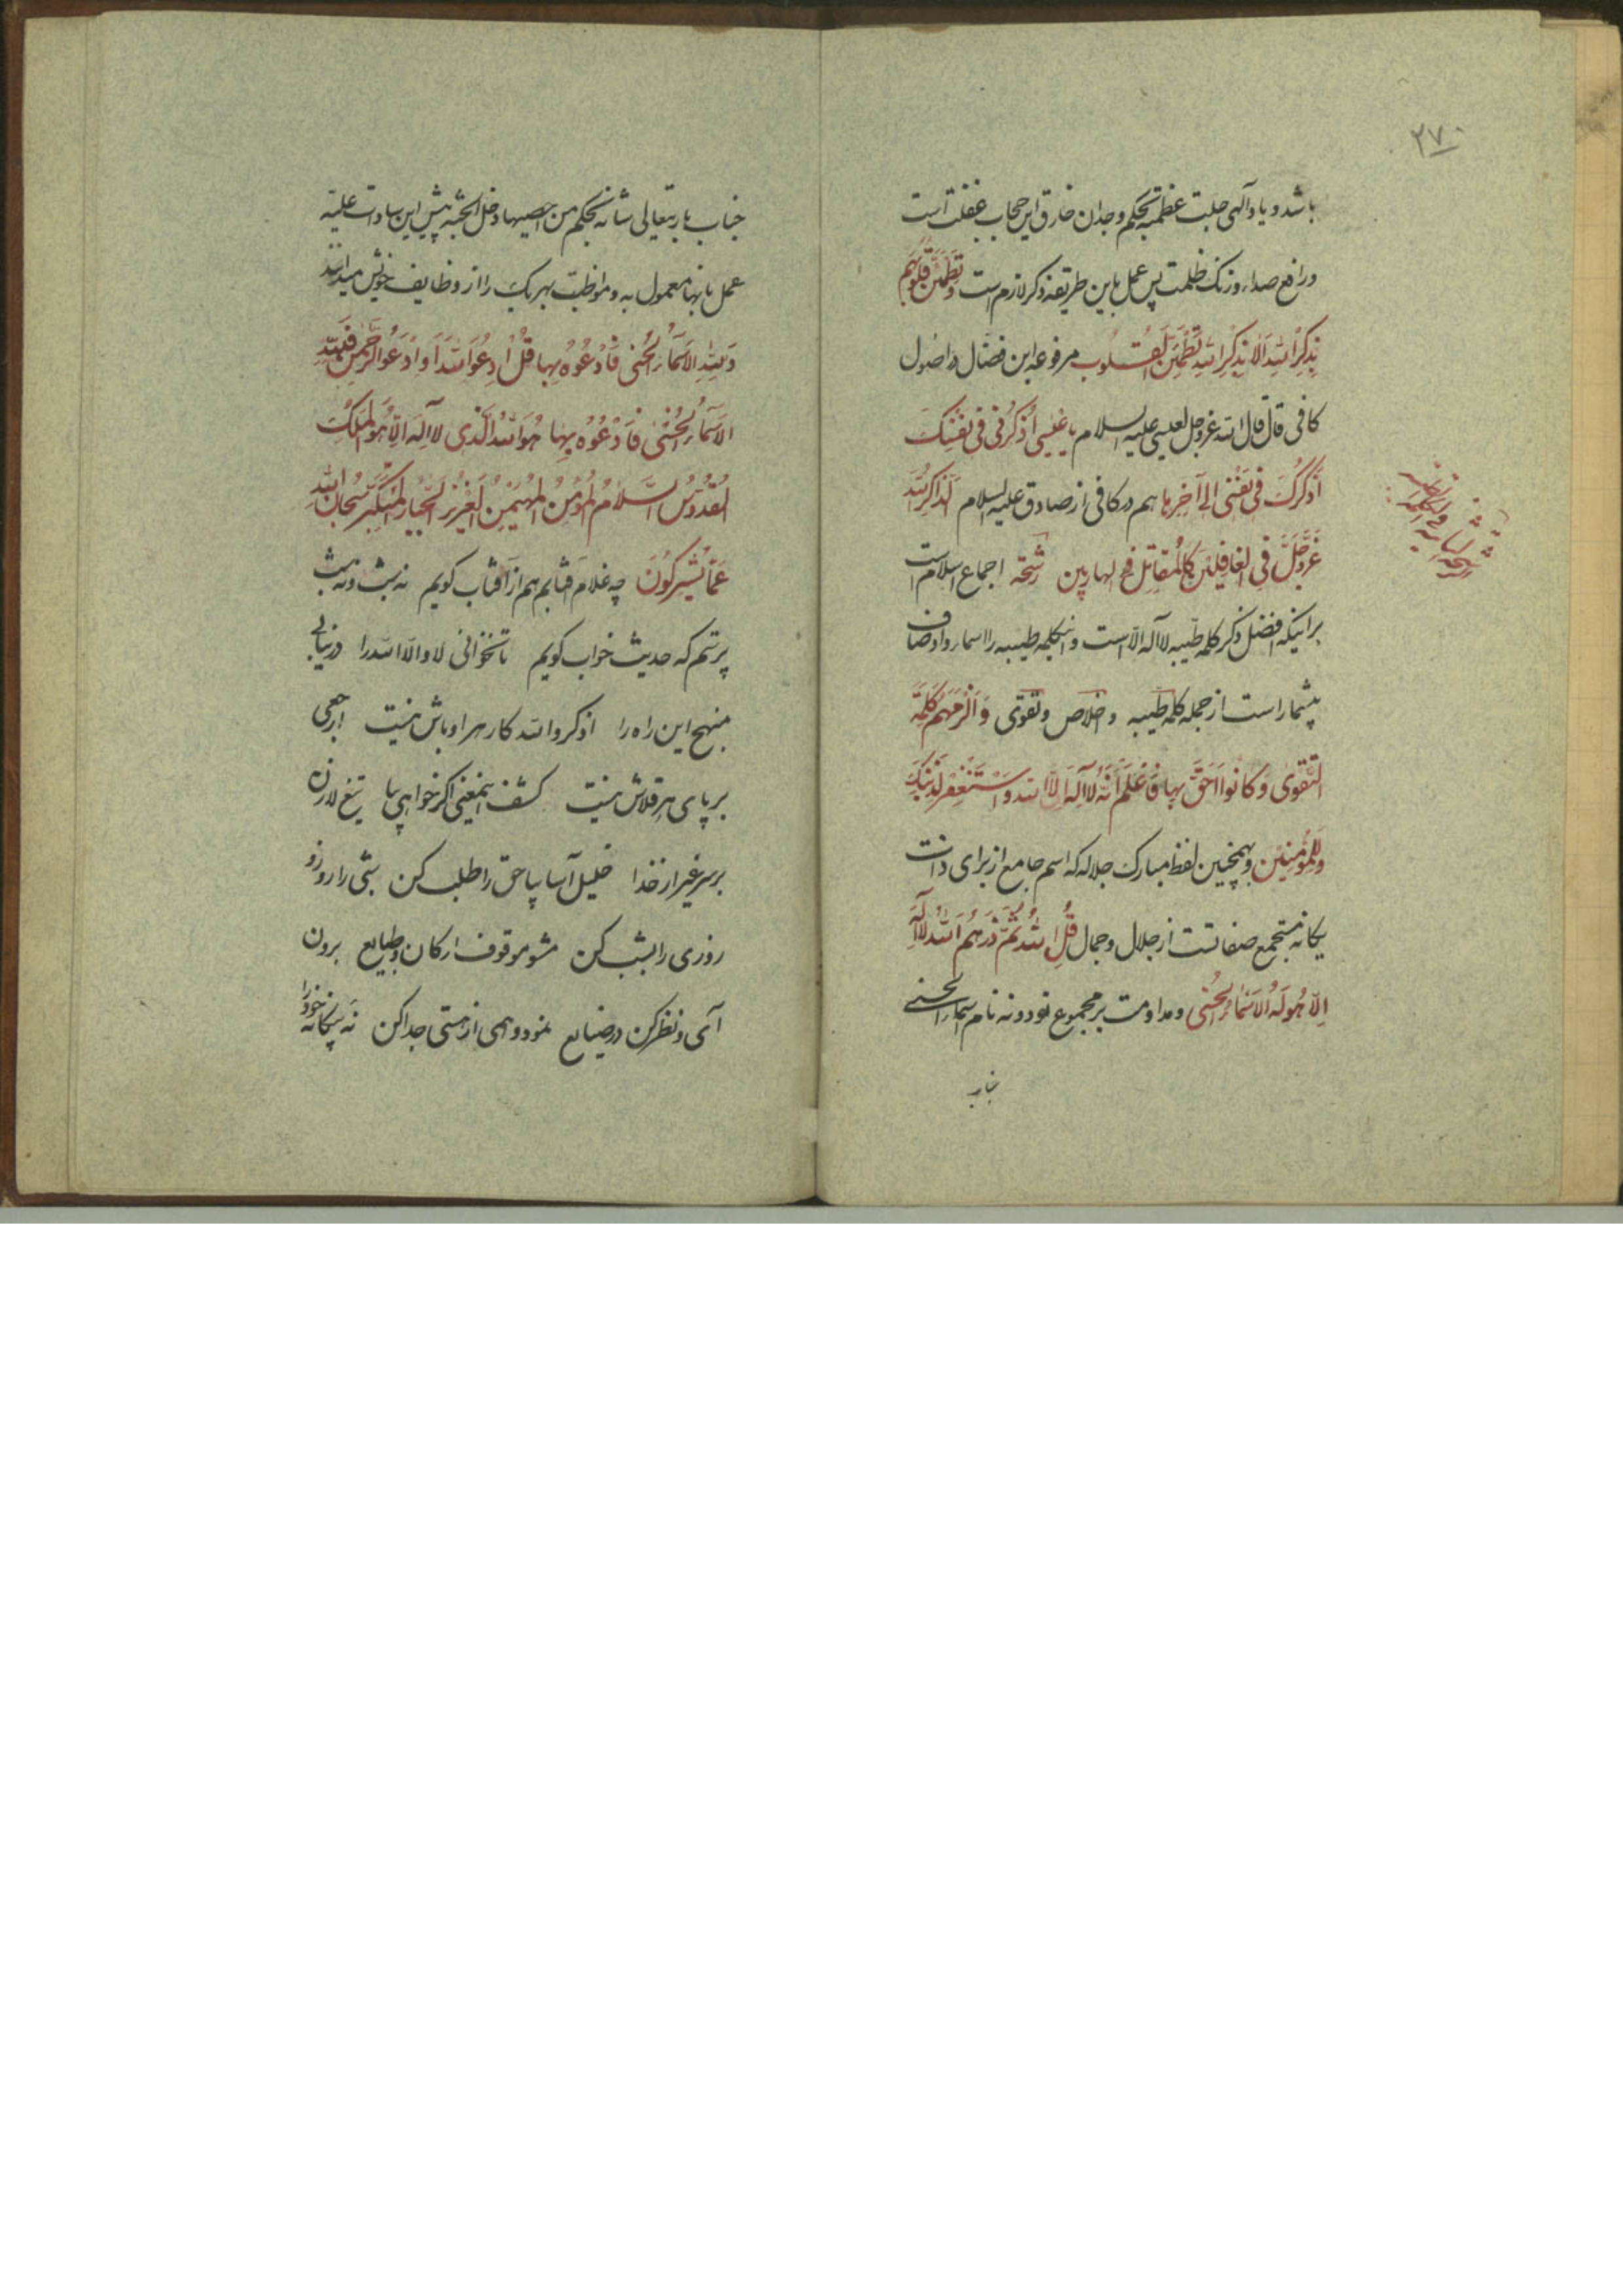 ۲۷۰
باشد و یاد آلهی جلت عظمته بحکم وجدان خارق این حجاب غفلت است
و رافع صداء و زنک ظلمت پس عمل باین طریقه ذکر لازم است وَ تَطْمَئِنُّ قُلُوبُهُم
بِذِکْرِ اللّهِ اَلا بِذِکْرِ اللّهِ تَطْمَئِنُّ القُلُوب مرفوعه ابن فضّال در اصول
کافی قال قال اللّه عزوجل لعیسی علیه السلام یا عیسی اُذْکُرنی فی نَفْسِکَ
اَذْکُرْکَ فی نَفْسی الی آخِرها هم در کافی از صادق علیه السلام اَلذّاکِرُ لِلّه
عَزَّوَجَلَّ فِی الغافِلینَ کَالمُقاتِلِ فی الهاربین رشحة اجماع اسلام است
بر اینکه افضل ذکر کلمه طیّبه لا آله الّا است و اینکلمه طیبه را اسماء و اوصاف
بیشمار است از جمله کلمه طیبه و اخلاص و تقوی وَ اَلْزَمَهُم کَلِمَةَ
التَّقوی وَ کانُوا اَحَقَّ بِها فَاعْلَم اَنَّهُ لا آلهَ الّا اللّه وَاسْتَغْفِر لِذَنْبِکَ
وَ لِلمُؤمِنینَ و همچنین لفظ مبارک جلاله که اسم جامع از برای ذات
یکانه مستجمع صفاتست از جلال و جمال قُلِ اللّهُ ثُمَّ ذَرهُم اَللّهُ لا آلهَ
اِلّا هُوَ لَهُ الاَسْماءُ الحُسْنی و مداومت بر مجموع نود و نه نام اسماء الحسنی
جناب
جناب باریتعالی شانه بحکم من احصیها دخل الجنّة پیش این سادات علیّه
عمل بانها معمول به و مواظبت بهریک را از وظایف خویش میدانند
وَ لِلّهِ الاَسْماءُ الحُسْنی فَادْعُوهُ بِها قُلِ ادْعُوا اللّهَ اَوِ ادْعُوا الرَّحْمنَ فَلِلّهِ
الاَسْماءُ الحُسْنی فَادْعُوهُ بِها هُوَ اللّهُ الَّذی لا آلهَ اِلّا هُوَ المَلِکُ
القُدُّوسُ السَّلامُ المُؤمِنُ المُهَیْمِنُ العَزیزُ الجَبّارُ المُتَکَبِّرُ سُبْحانَ اللّهِ
عَمّا یُشْرِکُونَ چه غلام آفتابم هم از آفتاب کویم نه شبم نه شب
پرستم که حدیث خواب کویم تا نخوانی لا و الّا اللّه را در نیابی
منهج این راه را اذکروا اللّه کار هر اوباش نیست ارجعی
بر پای هر قلاش نیست کشف اینمعنی اکر خواهی بیا تیغ لا زن
بر سر غیر از خدا خلیل آسا بیا حق را طلب کن شبی را روز و
روزی را بشب کن مشو موقوف ارکان و طبایع برون
آی و نظر کن در صنایع نمود وهمی از هستی جدا کن نه بیکانه خود را